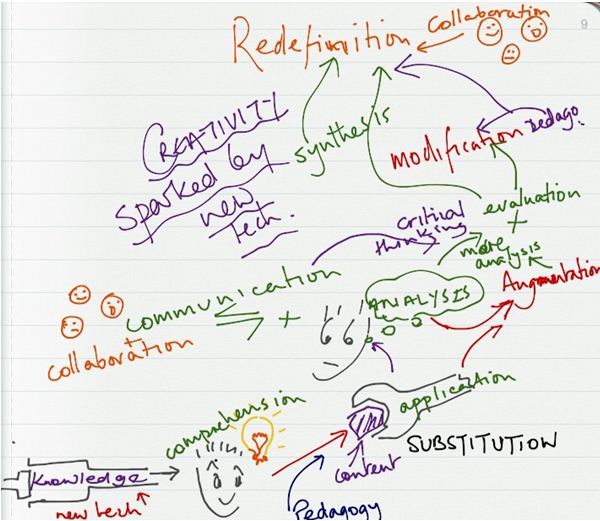 9
collaboration
Redefinition
CREATIVITY
sparked by
new
Tech.
synthesis
modification
Pedago.
evaluation
+
critical
thinking
more
analysis
Augmentation
communication
+
ANALYSIS
+
collaboration
application
comprehension
SUBSTITUTION
content
Knowledge
new tech
Pedagogy